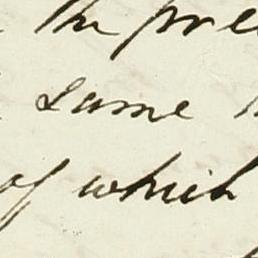 the pre
same
of which